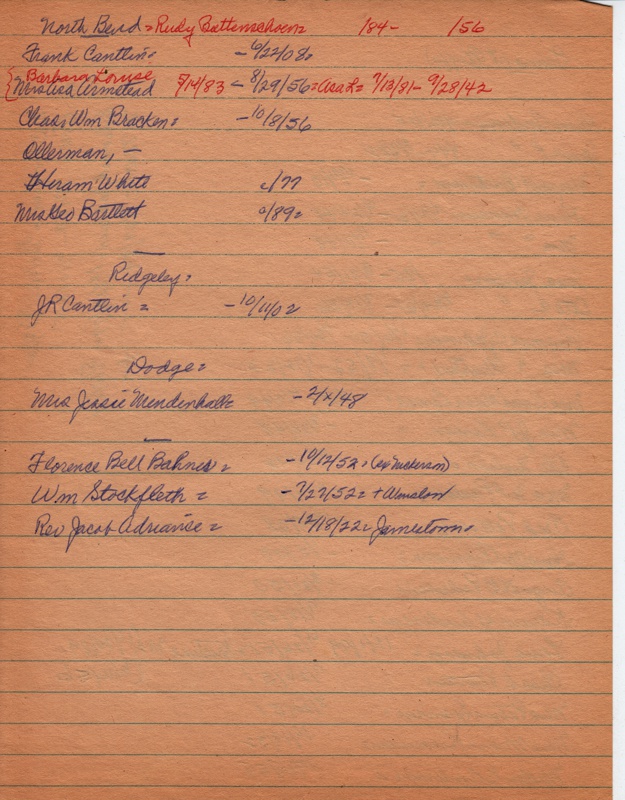 North Bend = Rudy /84- /56
Frank Cantlin = - 6/22/08.
Barbara Louise
Mrs Asa Armstead 5/14/83 - 8/29/56 = Asa L = 7/13/81 - 9/28/42
Chas. Wm Bracken = - 10/8/56
Ollerman, -
Hiram White c/77
Mrs Geo Bartlett c/89 =
Ridgeley =
JR Cantlin = - 10/11/02
Dodge =
Mrs Jessie Mendenhall = - 2/x/48
Florence Bell Bahnes = - 10/12/52, (Nickerson)
Wm Stockfleth = - 7/27/52 = + Winslow
Rev Jacob Adriance = - 12/18/22 = Jamestown =